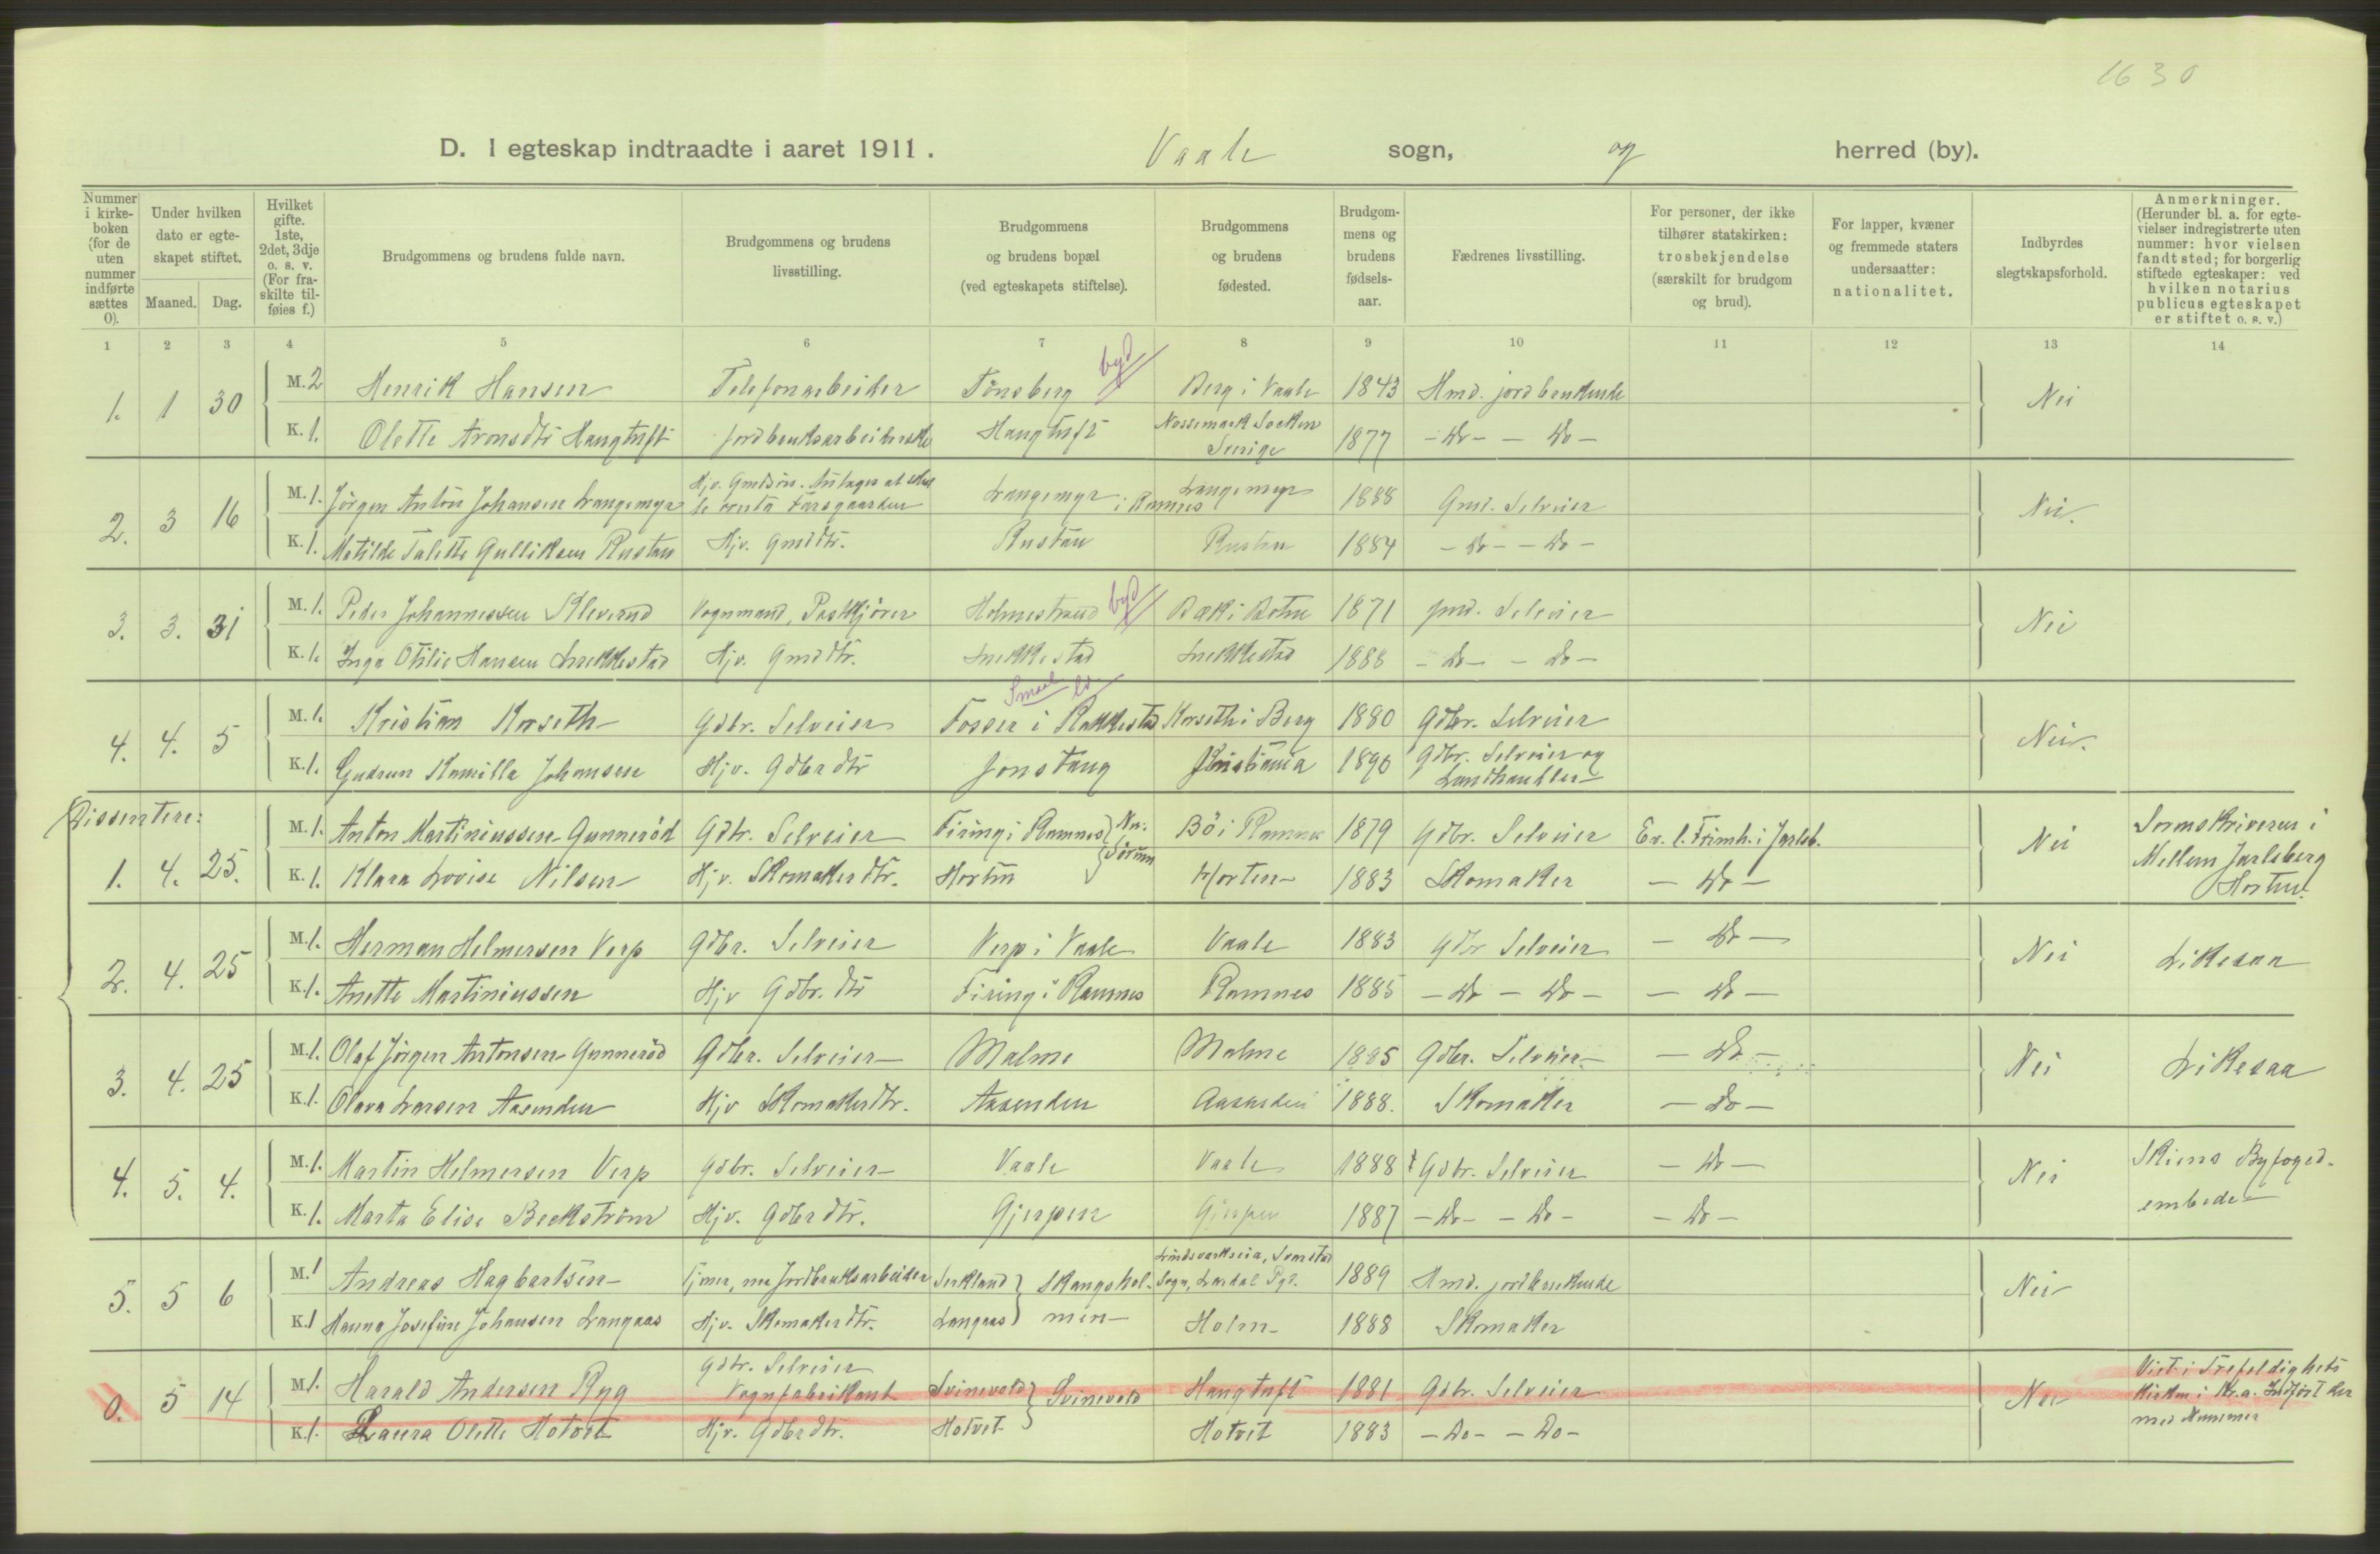 1630
D. I egteskap indtraadte i aaret 1911. Vaale sogn, og herred (by).
Nummer i kirke- boken (for de uten nummer indførte sættes 0).
Under hvilken dato er egte- skapet stiftet.
Maaned. Dag.
Hvilket gifte. 1ste, 2det, 3dje o. s. v. (For fra- skilte til- føies f.)
Brudgommens og brudens fulde navn.
Brudgommens og brudens livsstilling.
Brudgommens og brudens bopæl (ved egteskapets stiftelse).
Brudgommens og brudens fødested.
Brudgom- mens og brudens fødsels- aar.
Fædrenes livsstilling.
For personer, der ikke tilhører statskirken: trosbekjendelse (særskilt for brudgom og brud).
For lapper, kvæner og fremmede staters undersaatter: nationalitet.
Indbyrdes slegtskapsforhold.
Anmerkninger. (Herunder bl. a. for egte- vielser indregistrerte uten nummer: hvor vielsen fandt sted; for borgerlig stiftede egteskaper: ved hvilken notarius publicus egteskapet er stiftet o. s. v.)
1 2 3 4 5 6 7 8 9 10 11 12 13 14
byd
1. 1 30 M. 2 Henrik Hansen Telefonarbeider Tönsberg Berg i Vaale 1843 Hmd. jordbrukende Nei
K. 1. Olette Aronsdtr Haugtuft Jordbruksarbeiderske Haugtuft Nossemark Socken Sverige 1877 - Do - - Do -
2. 3 16 M. 1. Jörgen Anton Johansen Langemyr Hjv. Gmdsön. Langemyr i Ramnes Langemyr 1888 Gmd. Selveier Nei.
K. 1. Matilde Talette Gulliksen Rustan Hjv. Gmddtr. Rustan Rustan 1884 - do - - do -
byd
3. 3. 31 M. 1. Peder Johannessen Kleverud Vognmand, Postkjörer Holmestrand Bæk i Botne 1871 gmd. Selveier Nei
K. 1. Inga Otilie Hansen Snekkestad Hjv. Gmddtr. Snekkestad Snekkestad 1888 - do - - do -
Smaal.
4. 4. 5 M. 1. Kristian Korseth Gdbr. Selveier Fosser i Rakkestad Korseth i Berg 1880 Gdbr. Selveier Nei.
K. 1. Gudrun Kamilla Johansen Hjv. Gdbrdtr Jonstang Kristiania 1890 Gdbr. Selveier og Landhandler
Dissentere:
1. 4. 25. M. 1. Anton Martiniussen Gunneröd Gdbr. Selveier Firing i Ramnes Bö i Ramnes 1879 Gdbr. Selveier Ev. l. Frimh. i Jarlsb. Nei Sorenskriveren i Mellem Jarlsberg Horten.
K. 1. Klara Lovise Nilsen Hjv. Skomakerdtr. Horten Horten 1883 Skomaker - do -
2. 4. 25 M. 1. Herman Helmersen Verp Gdbr. Selveier Verp i Vaale Vaale 1883 Gdbr Selveier - do - Nei Likesaa
K. 1. Anette Martiniussen Hjv Gdbr. dtr Firing i Ramnes Ramnes 1885 - do - do - - do -
3. 4. 25 M. 1. Olaf Jörgen Antonsen Gunneröd Gdbr. Selveier Malme Malme 1885 Gdbr. Selveier - do - Nei Likesaa
K. 1. Olava Larsen Aasenden Hjv Skomakerdtr. Aasenden Aasenden 1888. Skomaker - do -
4. 5. 4. M. 1. Martin Helmersen Verp Gdbr. Selveier Vaale Vaale 1888 Gdbr. Selveier - do - Nei Skiens Byfoged- embede
K. 1. Marta Elise Beckström Hjv. Gdbrdtr. Gjerpen Gjerpen 1887 - do - - do - - do -
5. 5 6 M. 1 Andreas Hagbartsen Tjener, ved Jordbruksarbeider Serkland Skangshol- men Lardal Pgd. 1889 Hmd. jordbrukende Nei
K. 1 Hanna Josefine Johansen Langaas Hjv. Skomakerdtr. Langaas Holm 1888 Skomaker
0. 5 14 M. 1. Harald Andersen Ryg Gdbr. Selveier Vognfabrikant Svinevold Svinevold Haugtuft 1881 Gdbr. Selveier Nei Viet i Trefoldighets kirken i Kr.a. Indfört her med Nummer
K. 1. Laura Olette Hotvet Hjv. Gdbrdtr. Hotvet Hotvet 1883 - Do - - Do -